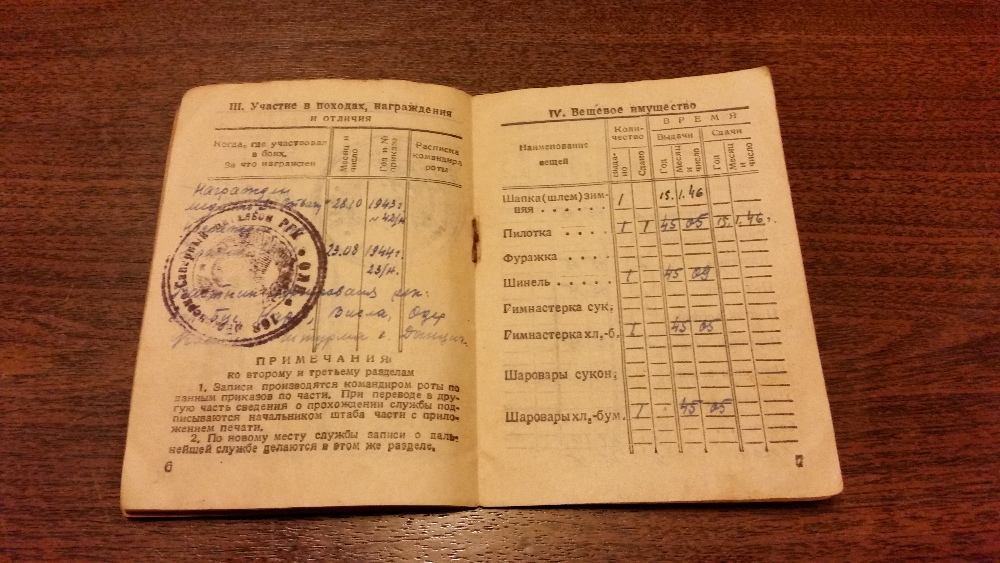 III. Участие в походах, награждения
и отличия
Когда, где участвовал
в боях.
За что награжден
Месяц и
число
Год и №
приказа
Расписка
командира
роты
Награжден
28.10 1943 г
№ 42/н
23.08 1944 г
23/н.
Висла, Одер
штурма г. Данциг.
ПРИМЕЧАНИЯ
ко второму и третьему разделам
1. Записи производятся командиром роты по
данным приказов по части. При переводе в дру-
гую часть сведения о прохождении службы под-
писываются начальником штаба части с прило-
жением печати.
2. По новому месту службы записи о даль-
нейшей службе делаются в этом же разделе.
6
IV. Вещевое имущество
Наименование
вещей
Коли-
чество
ВРЕМЯ
Выдачи Сдачи
выда-
но
Сдано
Год
Месяц
и
число
Год
Месяц
и
число
Шапка (шлем) зим-
няя . . . . . . 1 15.1.46
Пилотка . . . . 1 1 45 05 15.1.46 г.
Фуражка . . . .
Шинель . . . . . 1 45 09
Гимнастерка сук.
Гимнастерка хл.-б. 1 45 05
Шаровары сукон.
Шаровары хл.-бум. 1 45 05
7